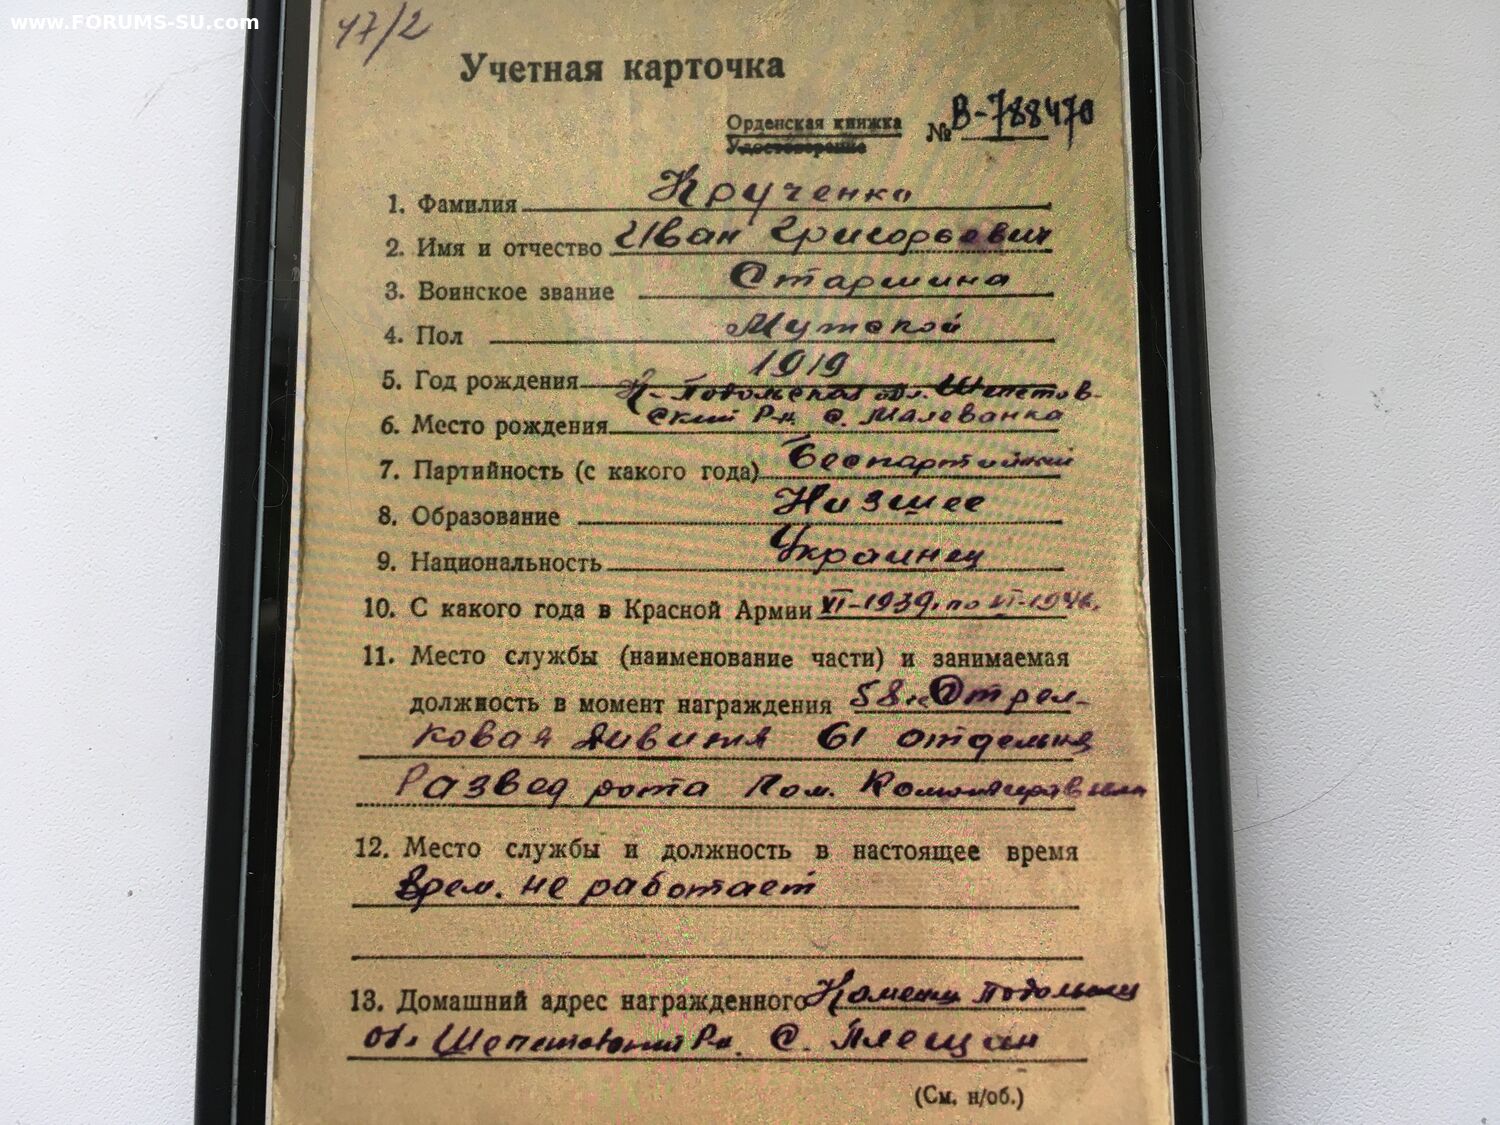 www.FORUMS-SU.com
47/2
Учетная карточка
Орденская книжка
Удостоверение
№ В-788470
1. Фамилия Крученко
2. Имя и отчество Иван Григорьевич
3. Воинское звание Старшина
4. Пол Мужской
5. Год рождения 1919
К-Подольская обл. Шепетов-
6. Место рождения ский р-н с. Малеванка
7. Партийность (с какого года) Беспартийный
8. Образование Низшее
9. Национальность Украинец
10. С какого года в Красной Армии VI-1939. по VI-1946.
11. Место службы (наименование части) и занимаемая
должность в момент награждения 58 Стрел-
ковая дивизия 61 отдельная
Развед рота Пом. Ком
12. Место службы и должность в настоящее время
Врем. не работает
13. Домашний адрес награжденного Каменец Подольский
обл Шепетовский р-н. С. Плещин
(См. н/об.)